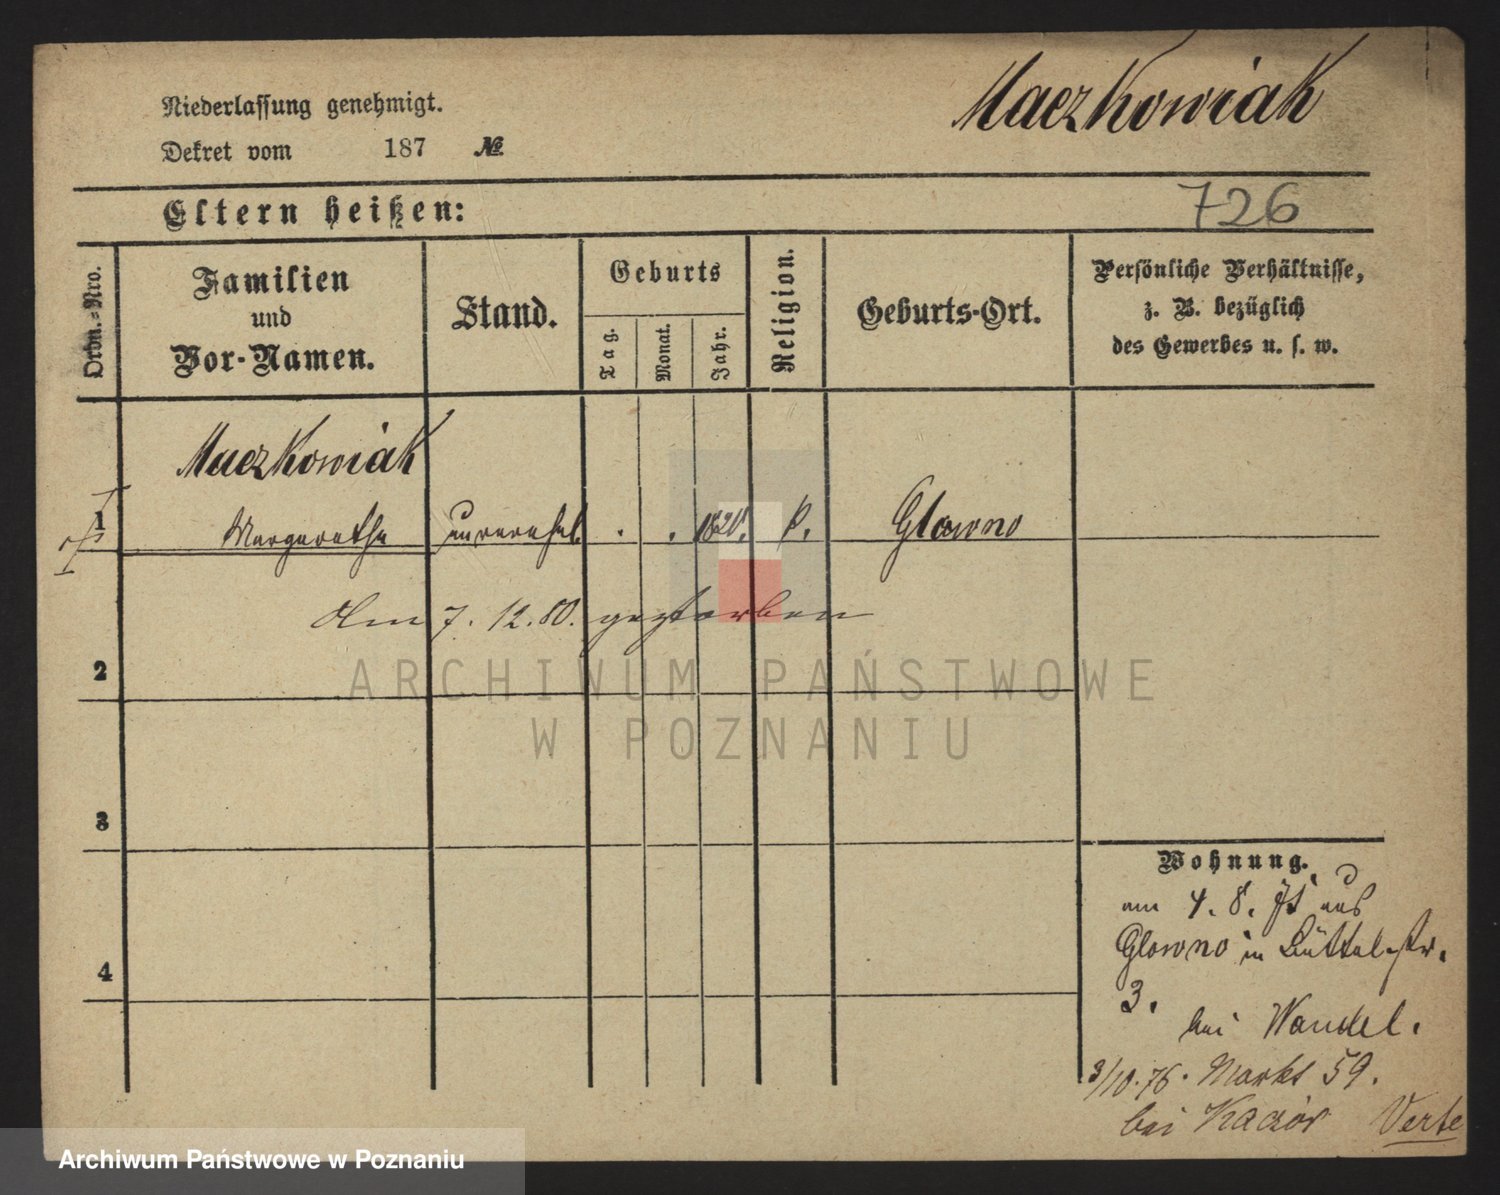 Maczkowiak
Niederlassung genehmigt.
Dekret vom 187 №
Eltern heißen:
726
Ordn.-Nro.
Familien
und
Vor-Namen.
Stand.
Geburts
Tag.
Monat.
Jahr.
Religion.
Geburts-Ort.
Persönliche Verhältnisse,
z. B. bezüglich
des Gewerbes u. s. w.
Maczkowiak
1 Margarethe unverehel. . . 1820. k. Glowno
Am 7. 12. 80. gestorben
2
3
4
Wohnung.
am 4. 8. 75 aus
Glowno in Büttelstr.
3.
bei Wandel.
3/10. 76. Markt 59.
bei Kaczór Verte
ARCHIWUM PAŃSTWOWE
W POZNANIU
Archiwum Państwowe w Poznaniu